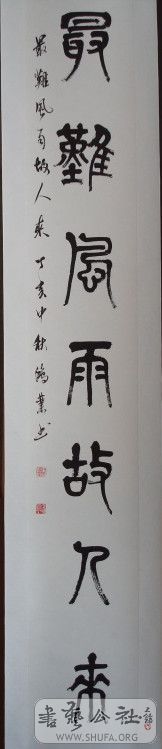 最難風雨故人來
最難風雨故人來 丁亥中秋鴻業書
書藝公社
WWW.SHUFA.ORG